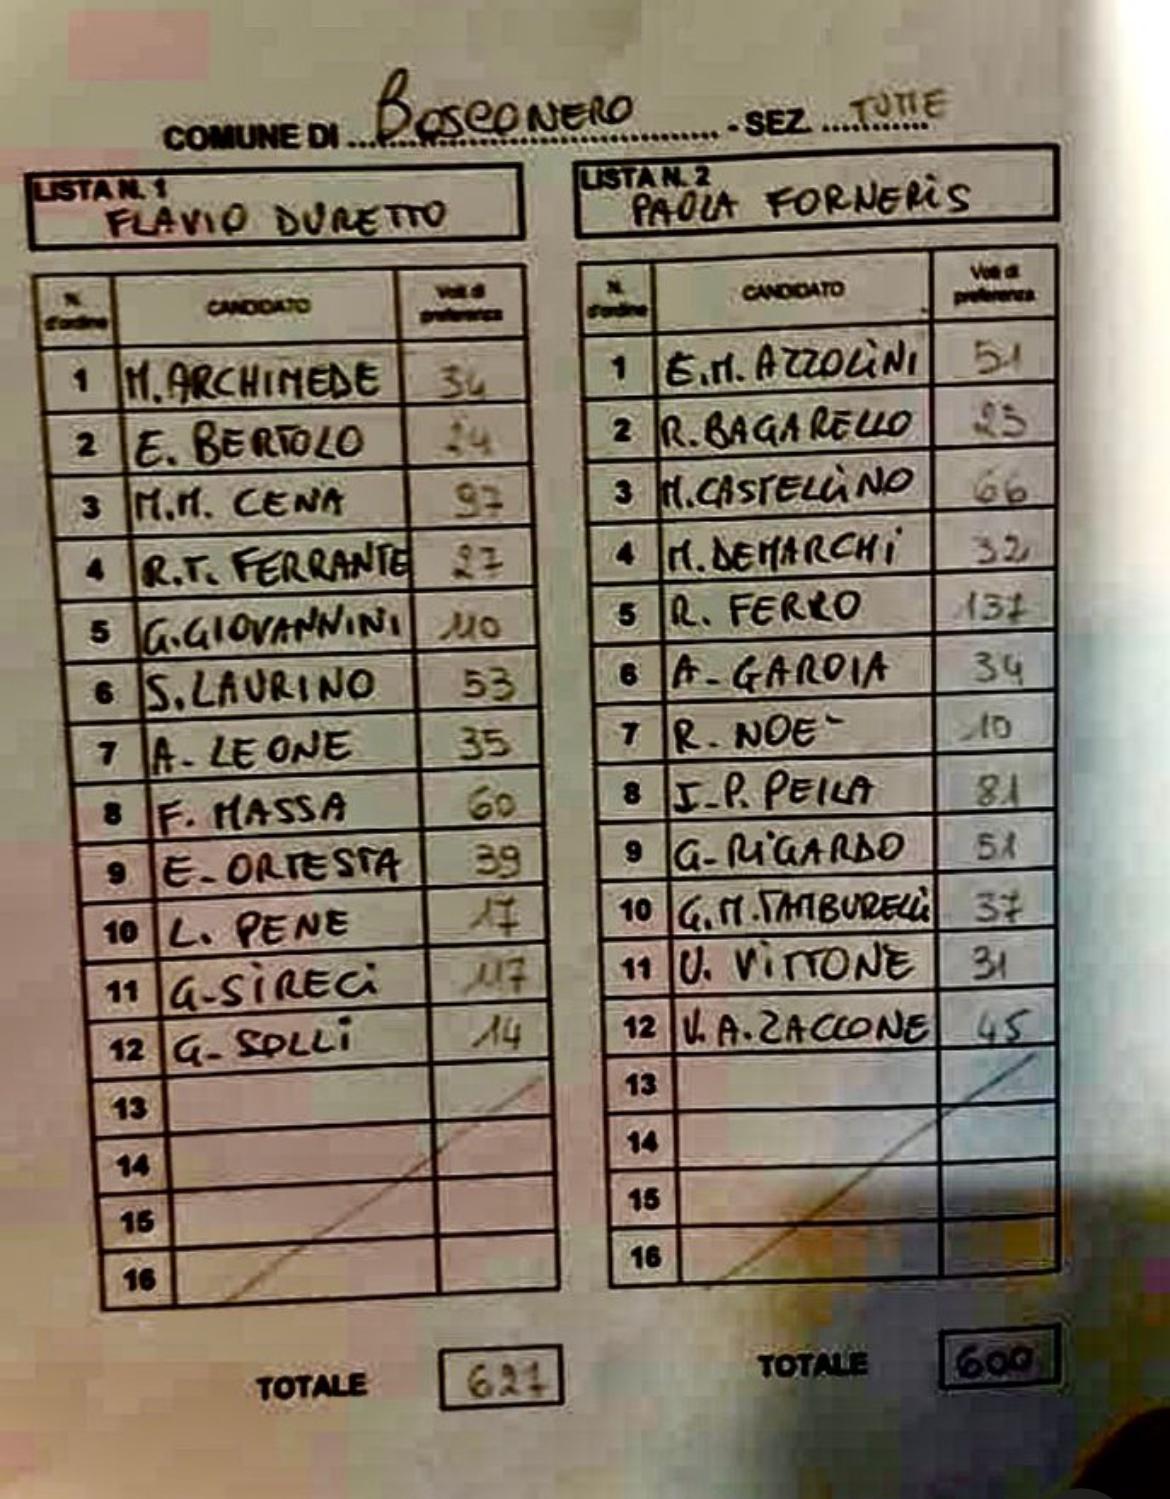 COMUNE DI BOSCONERO - SEZ. TUTTE
LISTA N. 1
FLAVIO DURETTO
N. d'ordine CANDIDATO Voti di preferenza
1 M. ARCHIMEDE 34
2 E. BERTOLO 24
3 M.M. CENA 97
4 R.T. FERRANTE 27
5 G. GIOVANNINI 110
6 S. LAURINO 53
7 A. LEONE 35
8 F. MASSA 60
9 E. ORTESTA 39
10 L. PENE 17
11 G. SIRECI 117
12 G. SOLLI 14
13
14
15
16
TOTALE 627
LISTA N. 2
PAOLA FORNERIS
N. d'ordine CANDIDATO Voti di preferenza
1 E.M. AZZOLINI 51
2 R. BAGARELLO 25
3 M. CASTELLINO 66
4 M. DEMARCHI 32
5 R. FERRO 137
6 A. GARDIA 34
7 R. NOE` 10
8 I.P. PEILA 81
9 G. RIGARDO 51
10 G.M. TAMBURELLI 37
11 U. VITTONE 31
12 V.A. ZACCONE 45
13
14
15
16
TOTALE 600